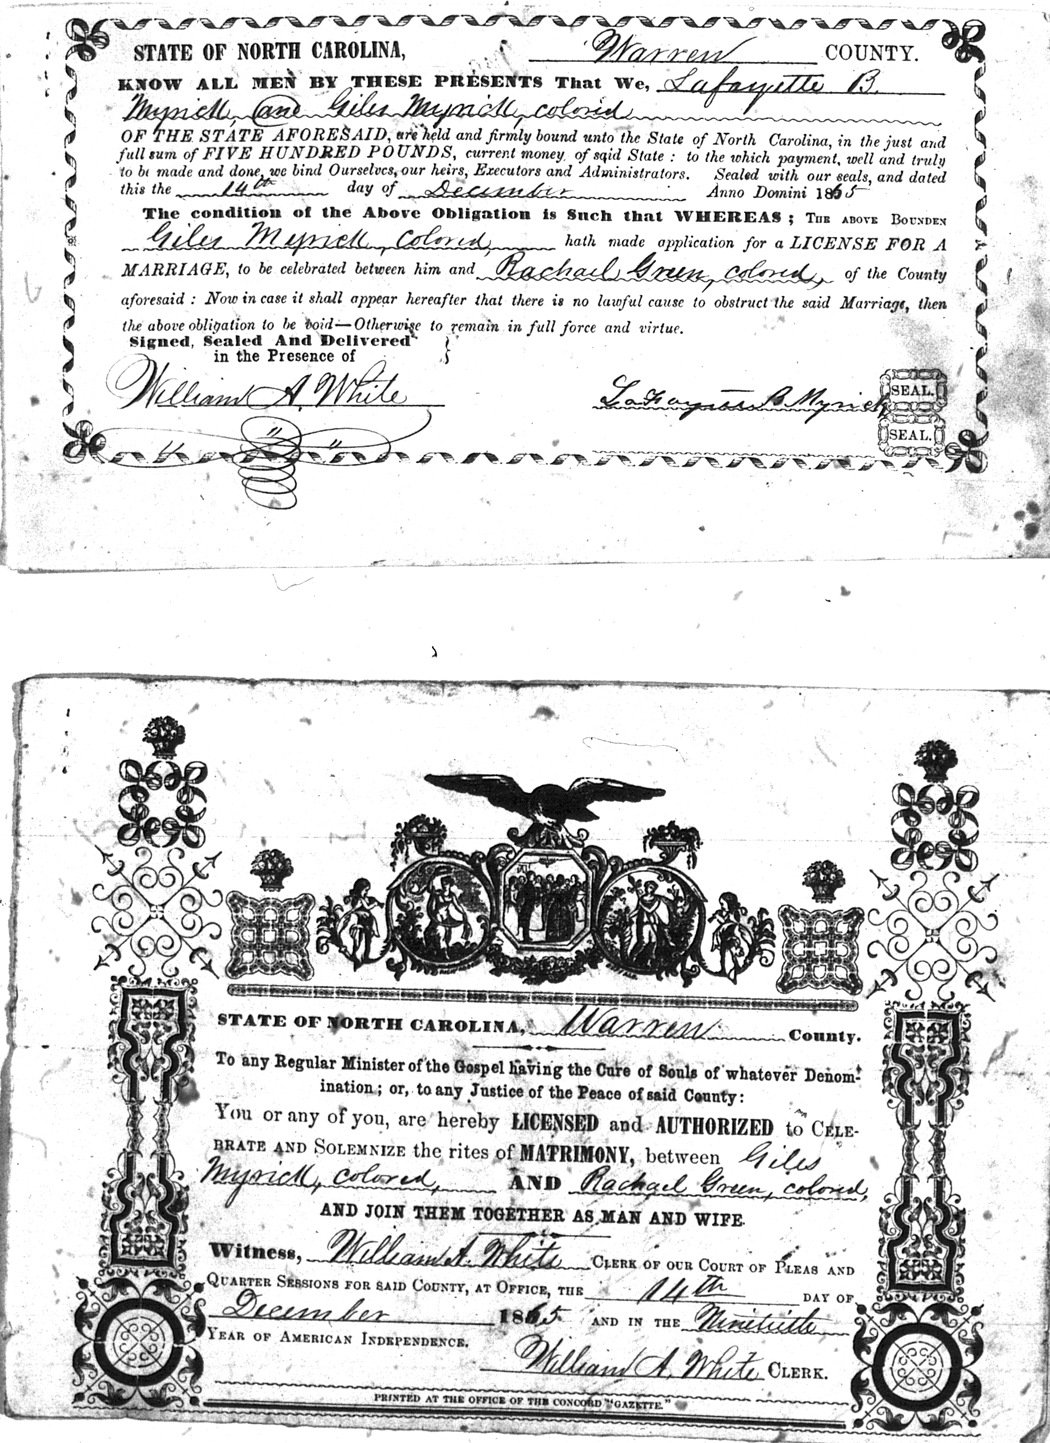 STATE OF NORTH CAROLINA, Warren COUNTY.
KNOW ALL MEN BY THESE PRESENTS That We, Lafayette B.
Myrick, and Giles Myrick, colored
OF THE STATE AFORESAID, are held and firmly bound unto the State of North Carolina, in the just and
full sum of FIVE HUNDRED POUNDS, current money of said State: to the which payment, well and truly
to be made and done, we bind Ourselves, our heirs, Executors and Administrators. Sealed with our seals, and dated
this the 14th day of December Anno Domini 1865
The condition of the Above Obligation is Such that WHEREAS; THE ABOVE BOUNDEN
Giles Myrick, colored, hath made application for a LICENSE FOR A
MARRIAGE, to be celebrated between him and Rachael Green, colored, of the County
aforesaid: Now in case it shall appear hereafter that there is no lawful cause to obstruct the said Marriage, then
the above obligation to be void—Otherwise to remain in full force and virtue.
Signed, Sealed And Delivered
in the Presence of
William A. White
LaFayette B Myrick SEAL.
SEAL.
STATE OF NORTH CAROLINA, Warren County.
To any Regular Minister of the Gospel having the Cure of Souls of whatever Denom-
ination; or, to any Justice of the Peace of said County:
You or any of you, are hereby LICENSED and AUTHORIZED to CELE-
BRATE AND SOLEMNIZE the rites of MATRIMONY, between Giles
Myrick, colored, AND Rachael Green, colored,
AND JOIN THEM TOGETHER AS MAN AND WIFE.
Witness, William A. White CLERK OF OUR COURT OF PLEAS AND
QUARTER SESSIONS FOR SAID COUNTY, AT OFFICE, THE 14th DAY OF
December 1865 AND IN THE Ninetieth
YEAR OF AMERICAN INDEPENDENCE.
William A. White CLERK.
PRINTED AT THE OFFICE OF THE CONCORD "GAZETTE."